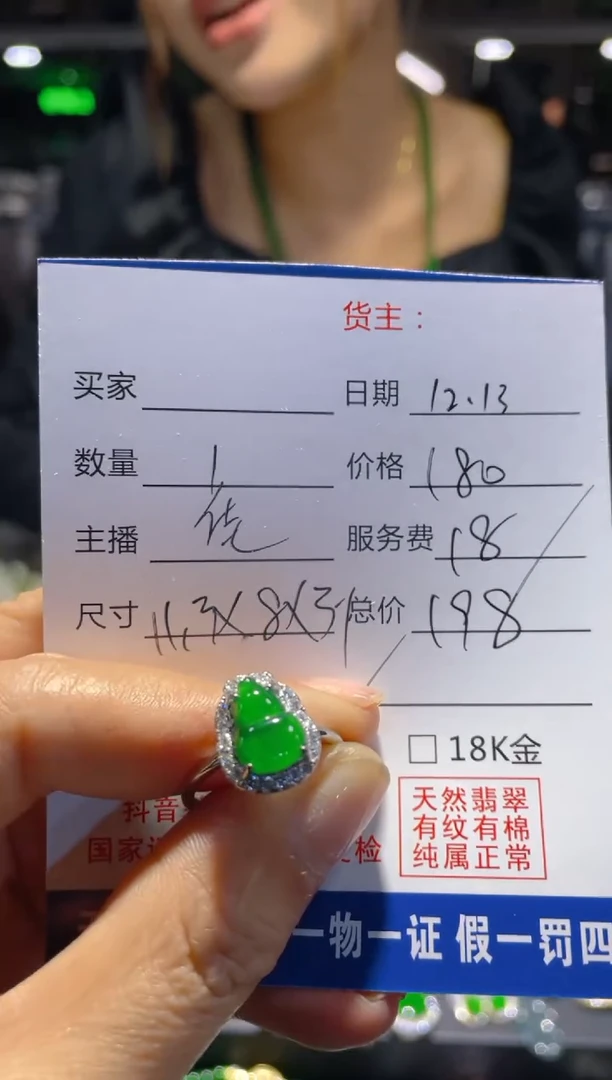 货主：
买家 日期 12.13
数量 1 价格 180
主播 服务费 18
尺寸 11.3X8X3.1 总价 198
□ 18K金
抖音
国家 检
天然翡翠
有纹有棉
纯属正常
一物一证 假一罚四